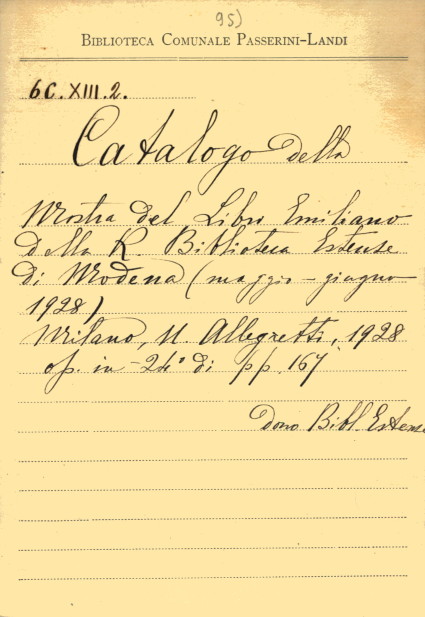 95)
BIBLIOTECA COMUNALE PASSERINI-LANDI
6C.XIII.2.
Catalogo della
Mostra del Libro Emiliano
della R. Biblioteca Estense
di Modena (maggio - giugno
1928)
Milano, U. Allegretti, 1928
op. in -24° di pp. 167
dono Bibl. Estense